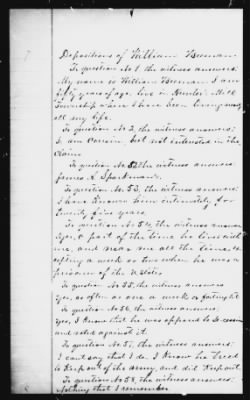 Depositions of William
To question No 1, the witness answers:
My name is William I am
fifty years of age, live in Mill
Township & have been living nearly
all my life.
To question No 2, the witness answers:
I am Cousin, but not interested in the
claim.
To question No 52 the witness answers:
James A. Sparkman.
To question No 53, the witness answers:
I have known him intimately for
twenty five years.
To question No 54, the witness answers:
Yes, a part of the time he lived with
me, and near me all the time ex-
cepting a week or two when he was a
prisoner of the U States
To question No 55, the witness answers
Yes, as often as once a week or
To question No 56, the witness answers:
Yes, I know that he was opposed to Secession
and voted against it.
To question No 57, the witness answers:
I cant say that I do. I know he tried
to keep out of the army, and did keep out.
To question No 58, the witness answers:
Nothing that I remember